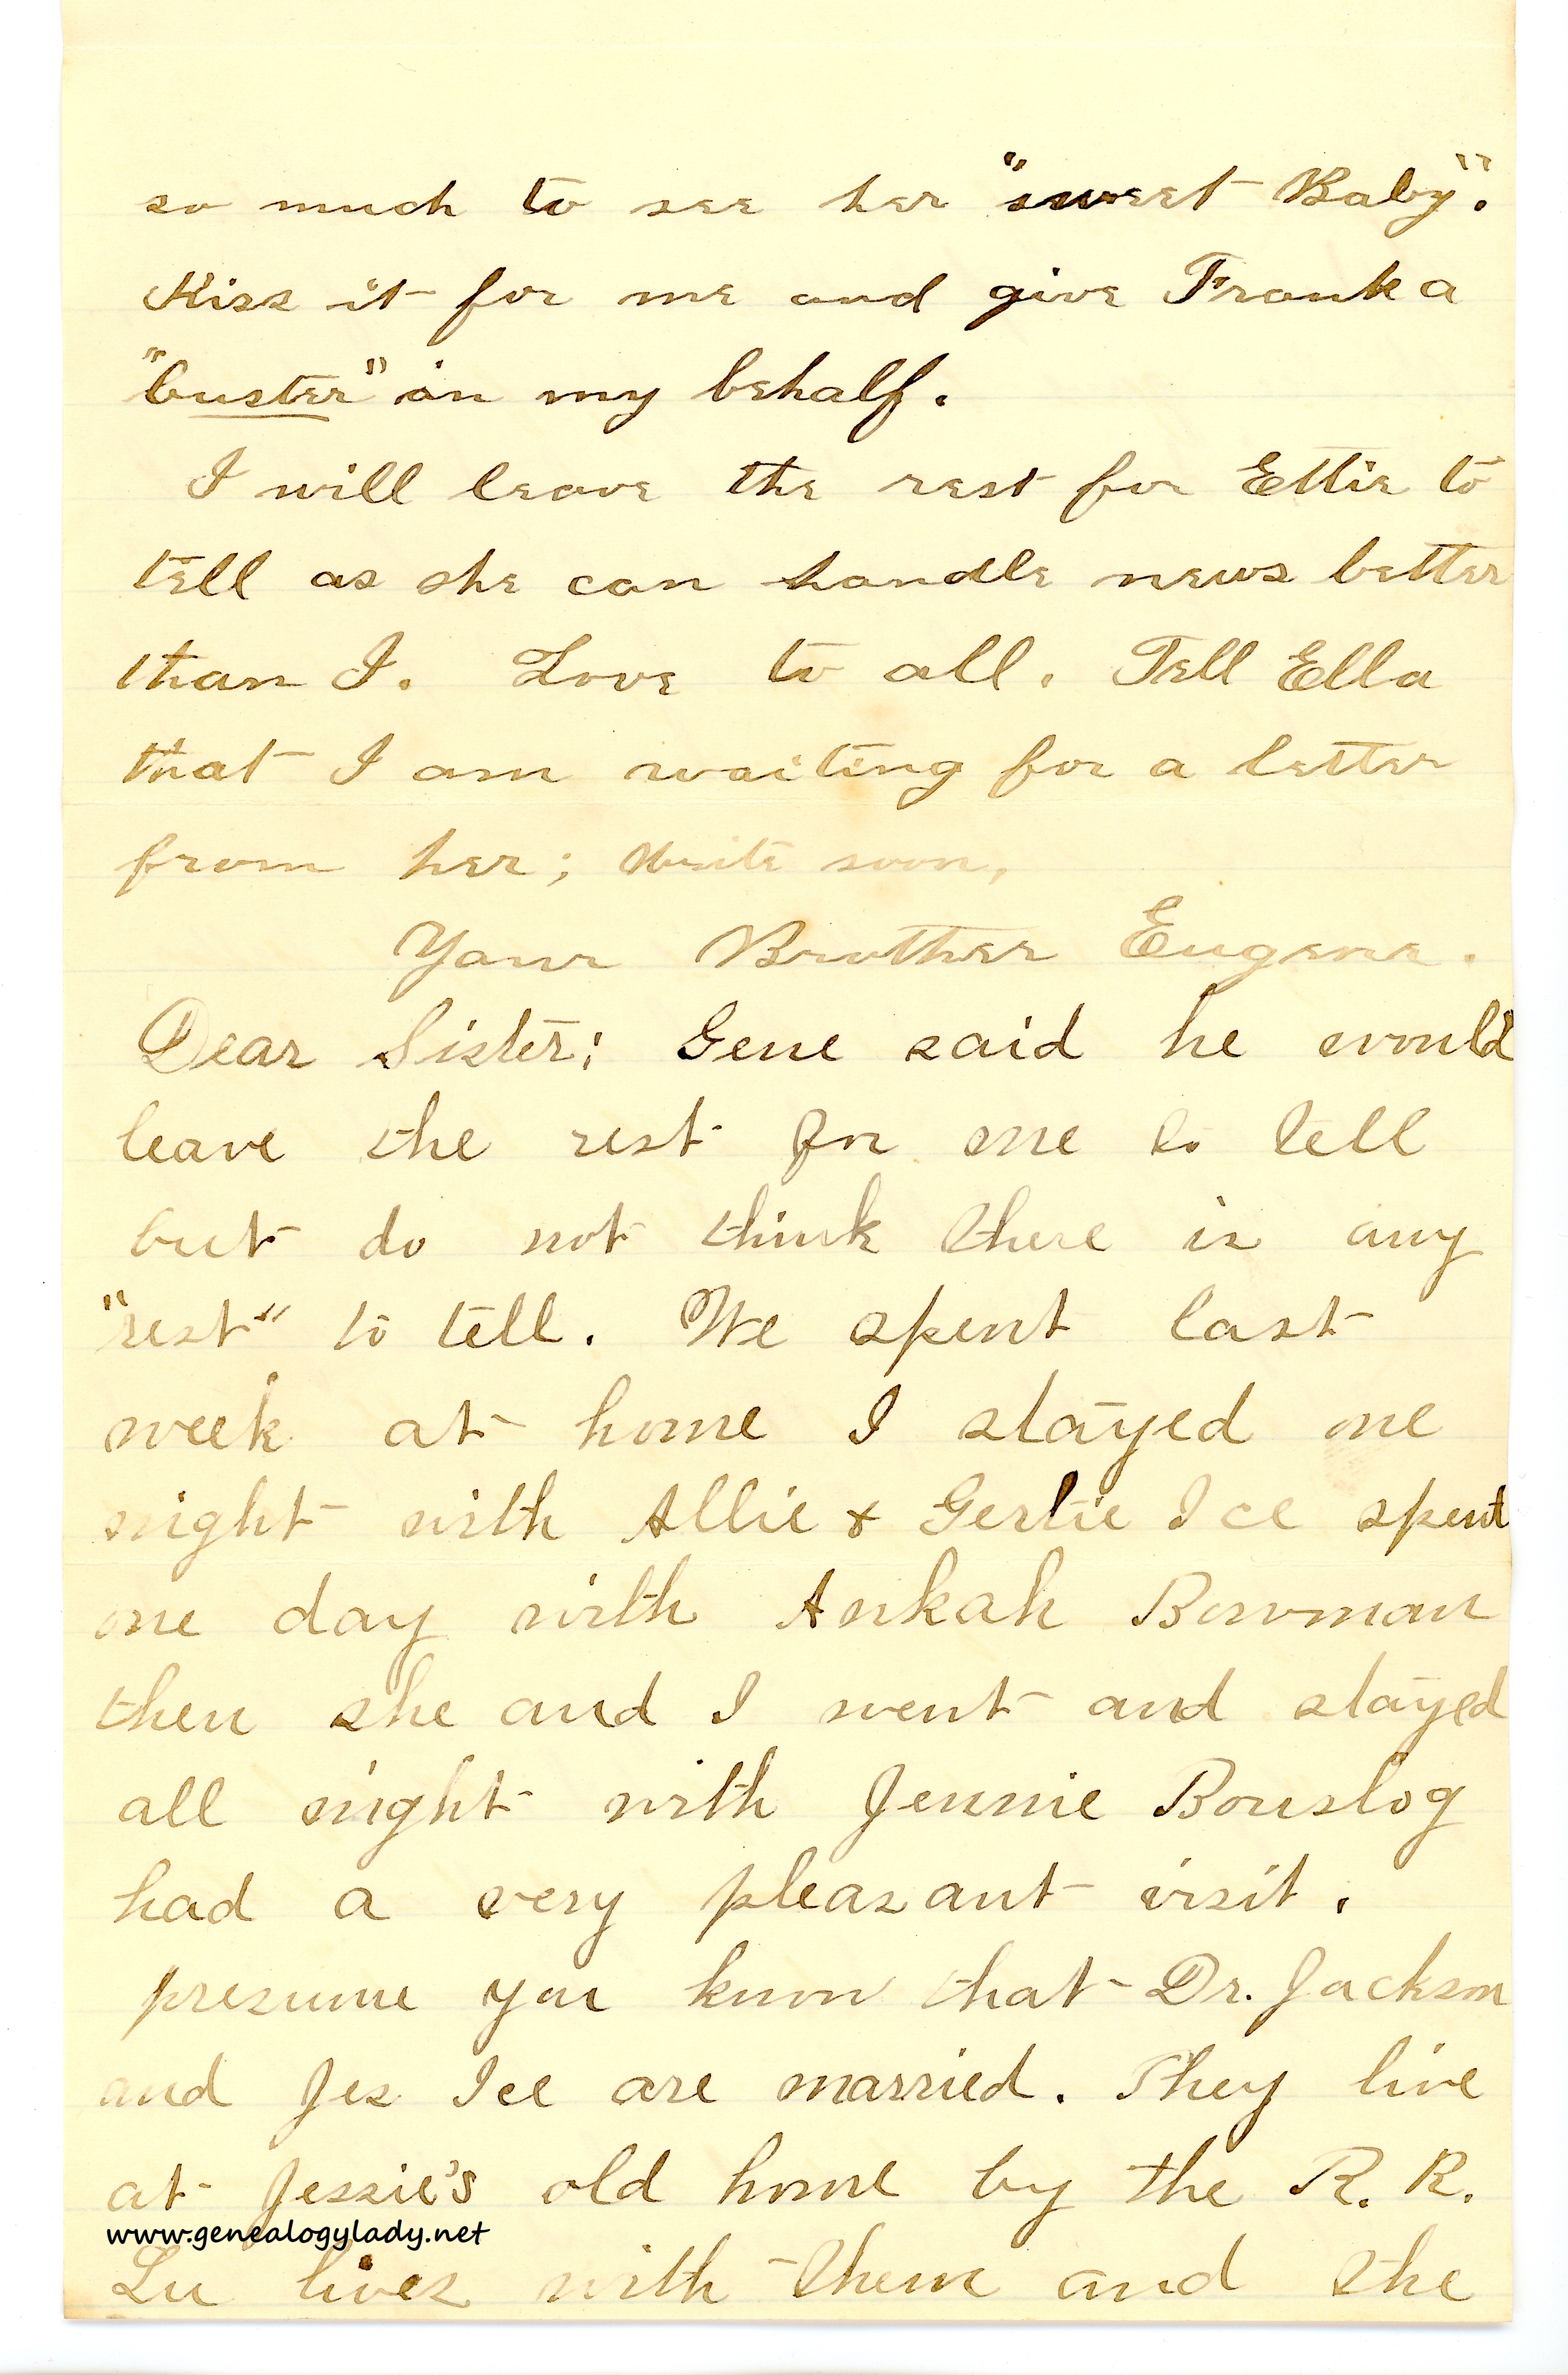 so much to see her "sweet Baby".
Kiss it for me and give Frank a
"buster" in my behalf.
I will leave the rest for Ettie to
tell as she can handle news better
than I. Love to all. Tell Ella
that I am waiting for a letter
from her; Write soon,
Your Brother Eugene.
Dear Sister; Gene said he would
leave the rest for me to tell
but do not think there is any
"rest" to tell. We spent last
week at home I stayed one
night with Allie & Gertie Ice spent
one day with Ankah Bowman
then she and I went and stayed
all night with Jennie Bouslog
had a very pleasant visit.
presume you know that Dr. Jackson
and Jes Ice are married. They live
at Jessie's old home by the R. R.
www.genealogylady.net
Lu lives with them and she